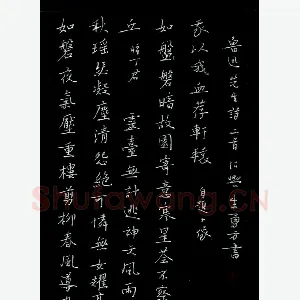 如磐夜氣壓重樓剪柳春風導九
秋瑤瑟凝塵清怨絕可憐無女耀高
丘 悼丁君 靈臺無計逃神矢風雨
如盤磐暗故園寄意寒星荃不察
我以我血荐軒轅 自題小像
魯迅先生詩二首